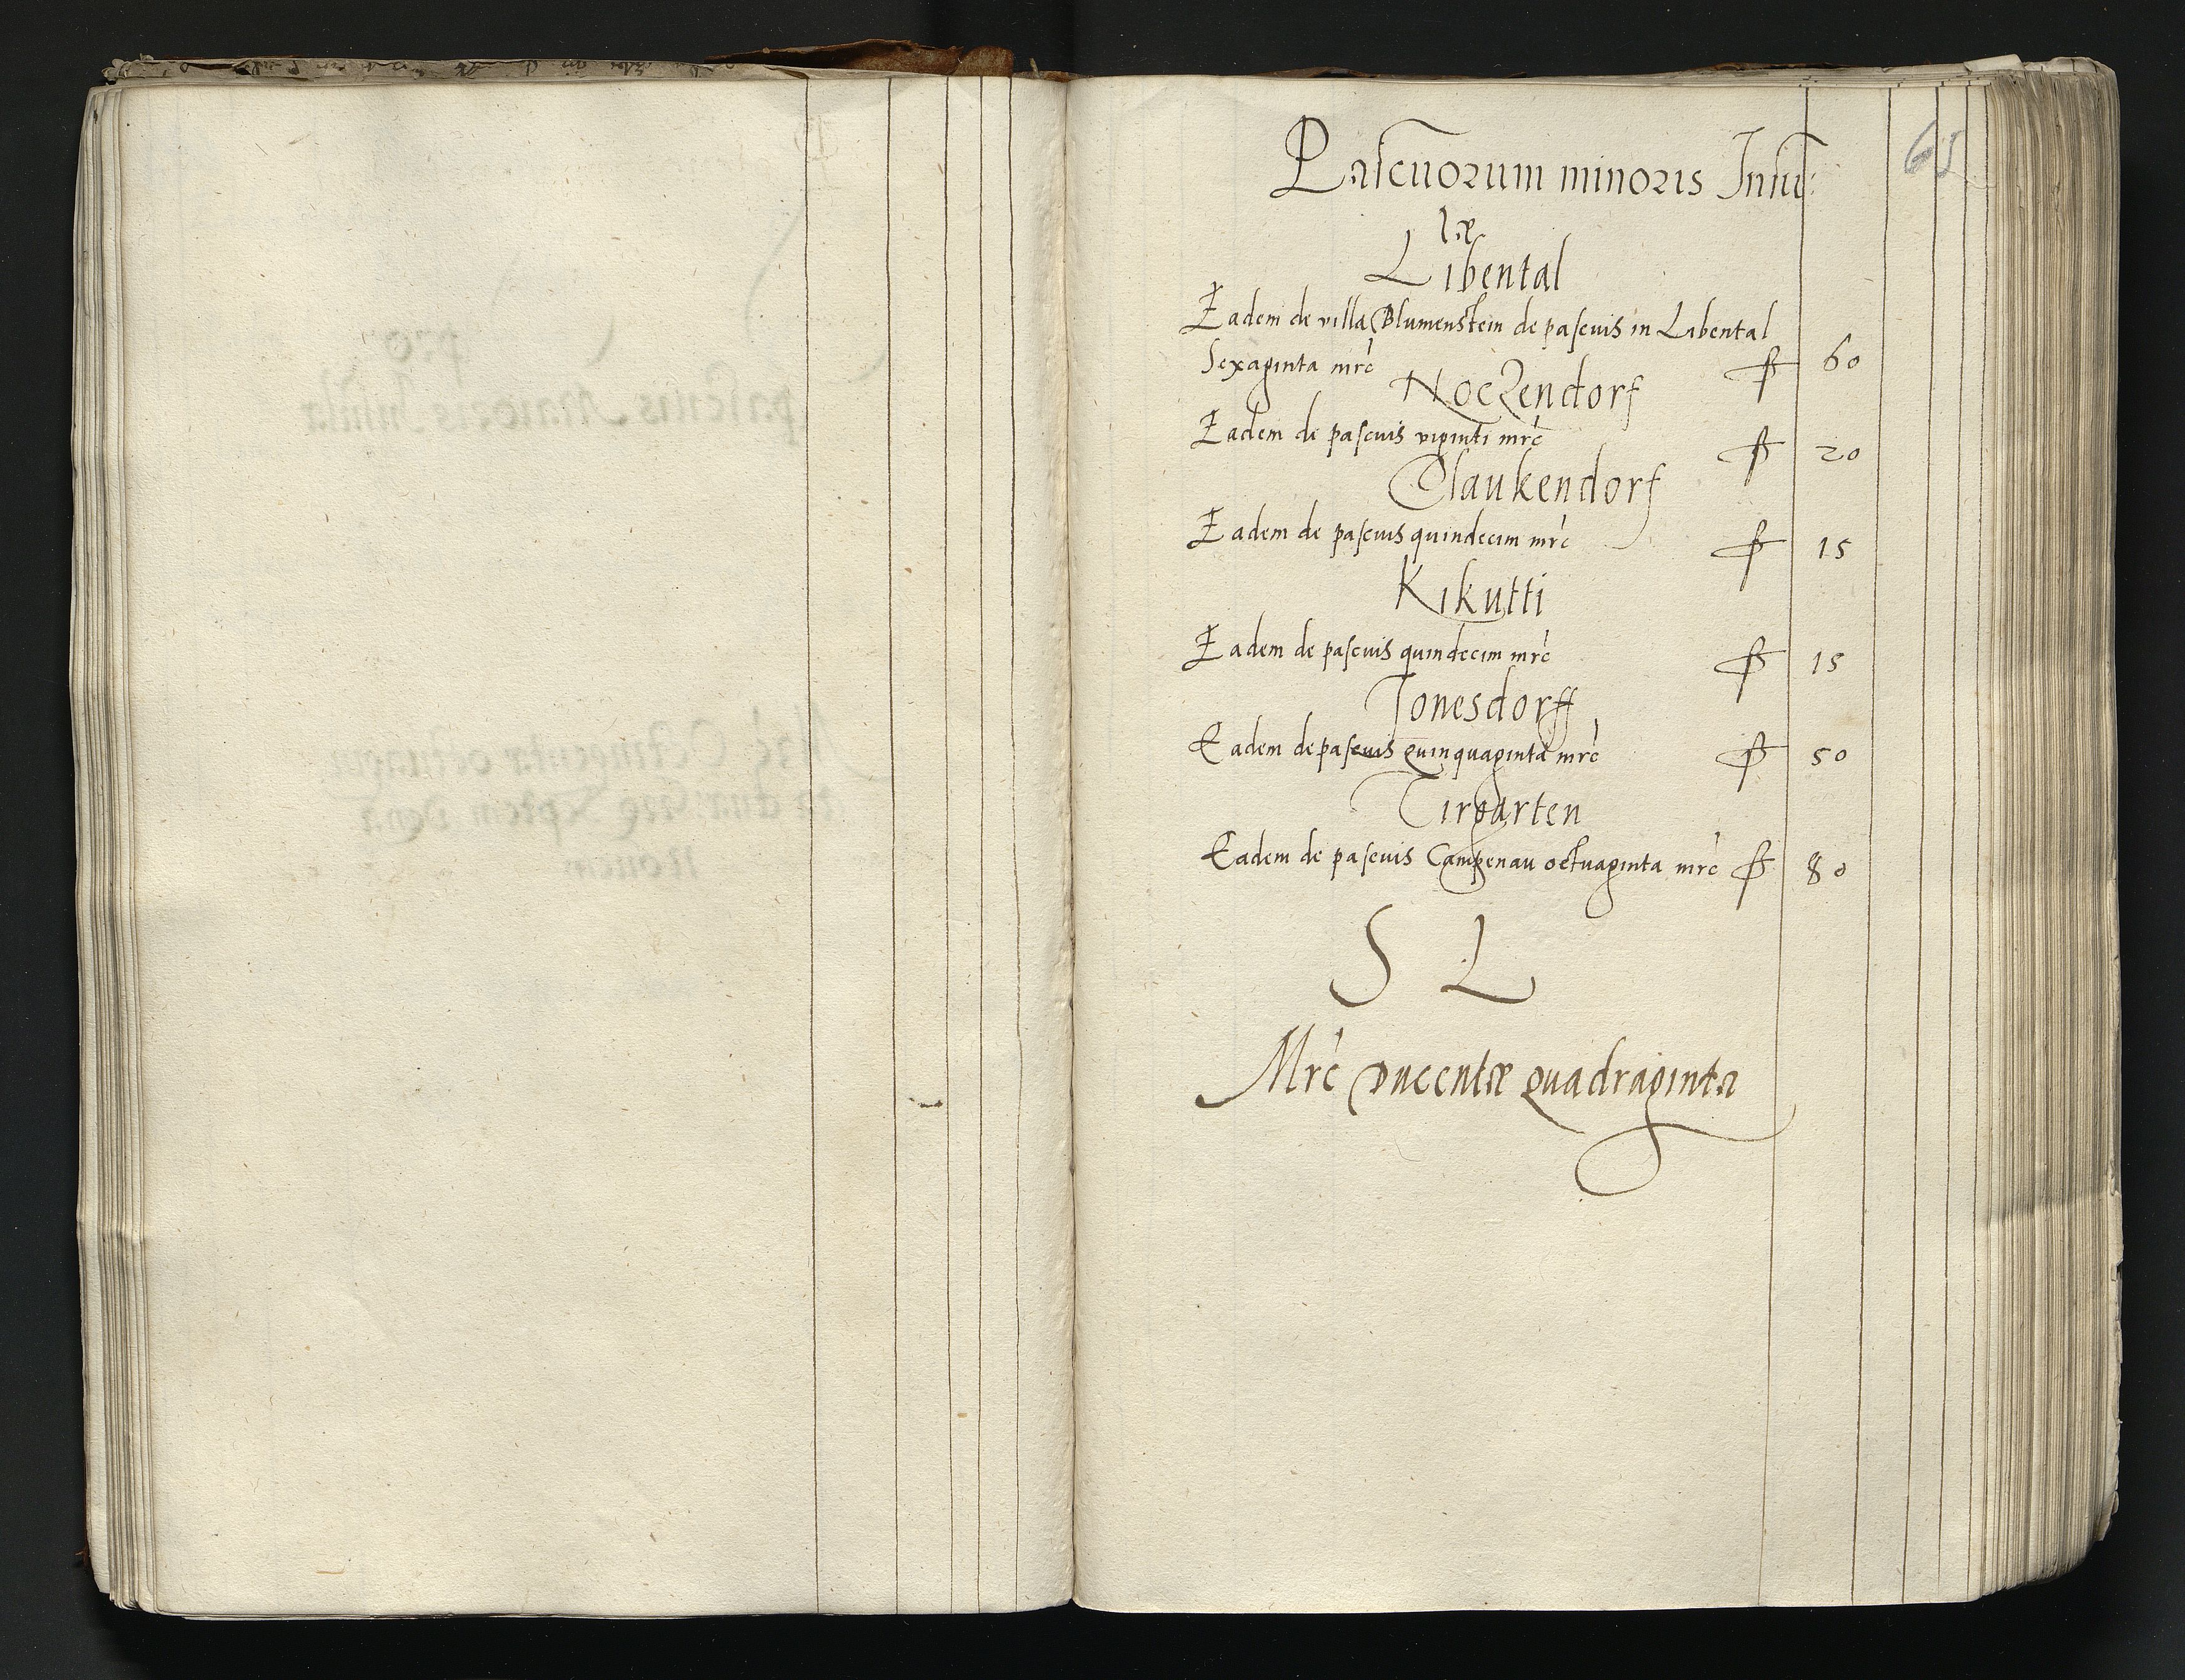 65
Pascuorum minoris Insu:
læ
Libental
Eadem de villa Blumenstein de pascuis in Libental
Sexaginta mrc 60
Noczendorf
Eadem de pascuis viginti mrc 20
Claukendorf
Eadem de pascuis quindecim mrc 15
Kikutti
Eadem de pascuis quindecim mrc 15
Jonesdorff
Eadem de pascuis quinquaginta mrc 50
Tirgarten
Eadem de pascuis Campenau octuaginta mrc 80
S L
Mrc Ducentæ quadraginta